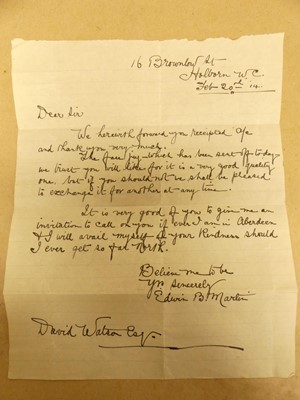 16 Brownlow St
Holborn W.C.
Feb 20th 14.
Dear Sir
We herewith forward you receipted a/c
and thank you very much.
The jug which has been sent off to day
we trust you will like for it is a very good quality
one. but if you should not we shall be pleased
to exchange it for another at any time.
It is very good of you to give me an
invitation to call on you if ever I am in Aberdeen
& I will avail myself of your Kindness should
I ever get so far North.
Believe me to be
Yrs Sincerely
Edwin B. Martin
David Watson Esqr.